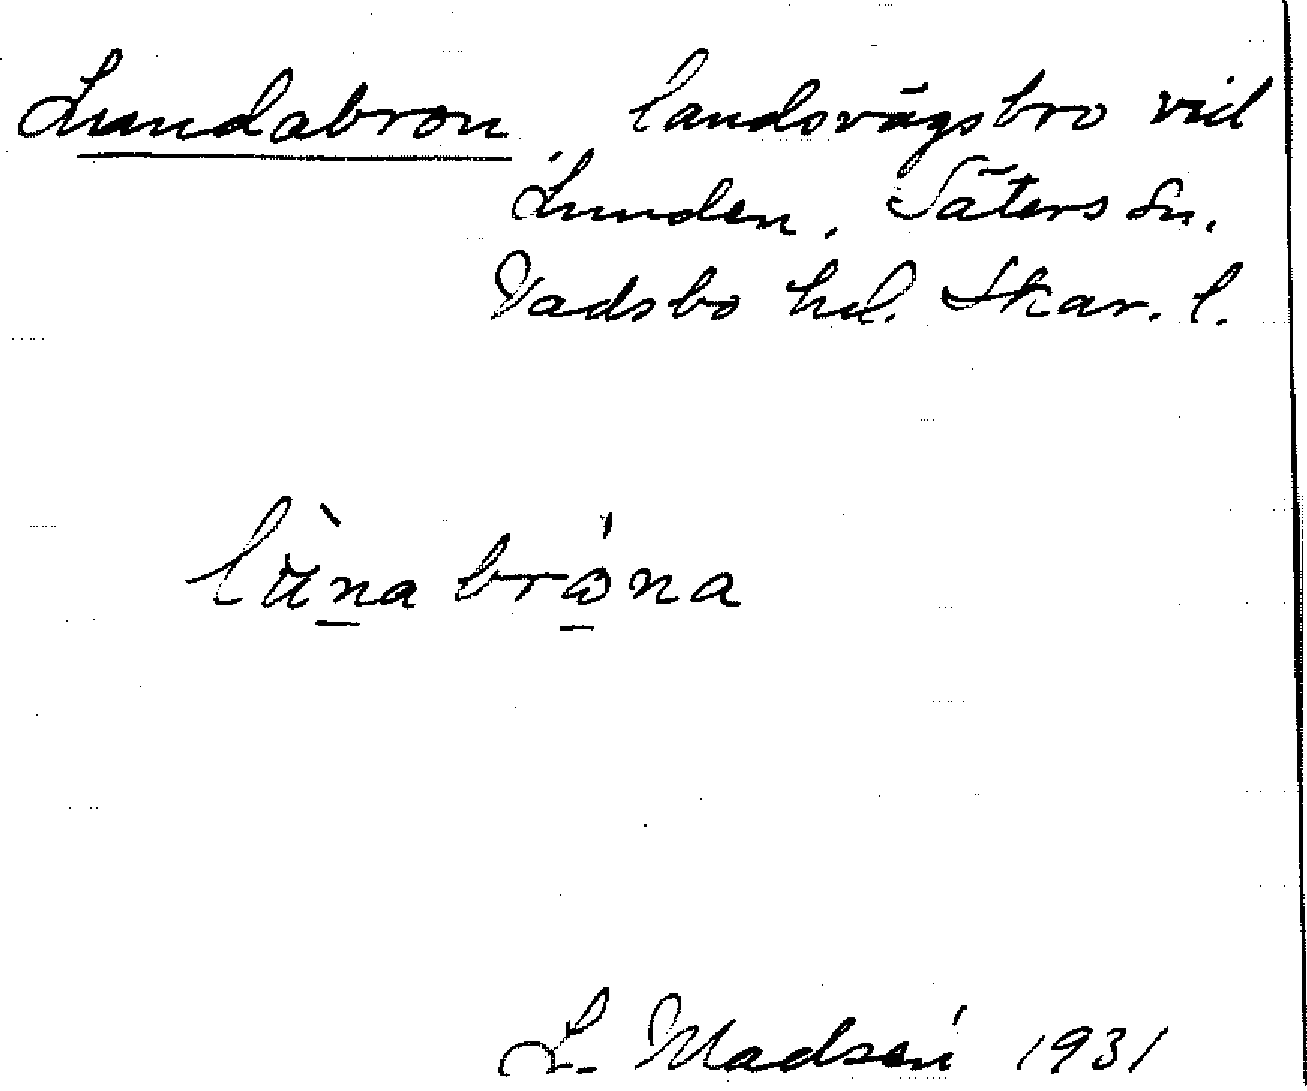 Lundabron landsvägsbro vid
Lunden, Säters sn.
Vadsbo hd. Skar. l.
L. Madsén 1931